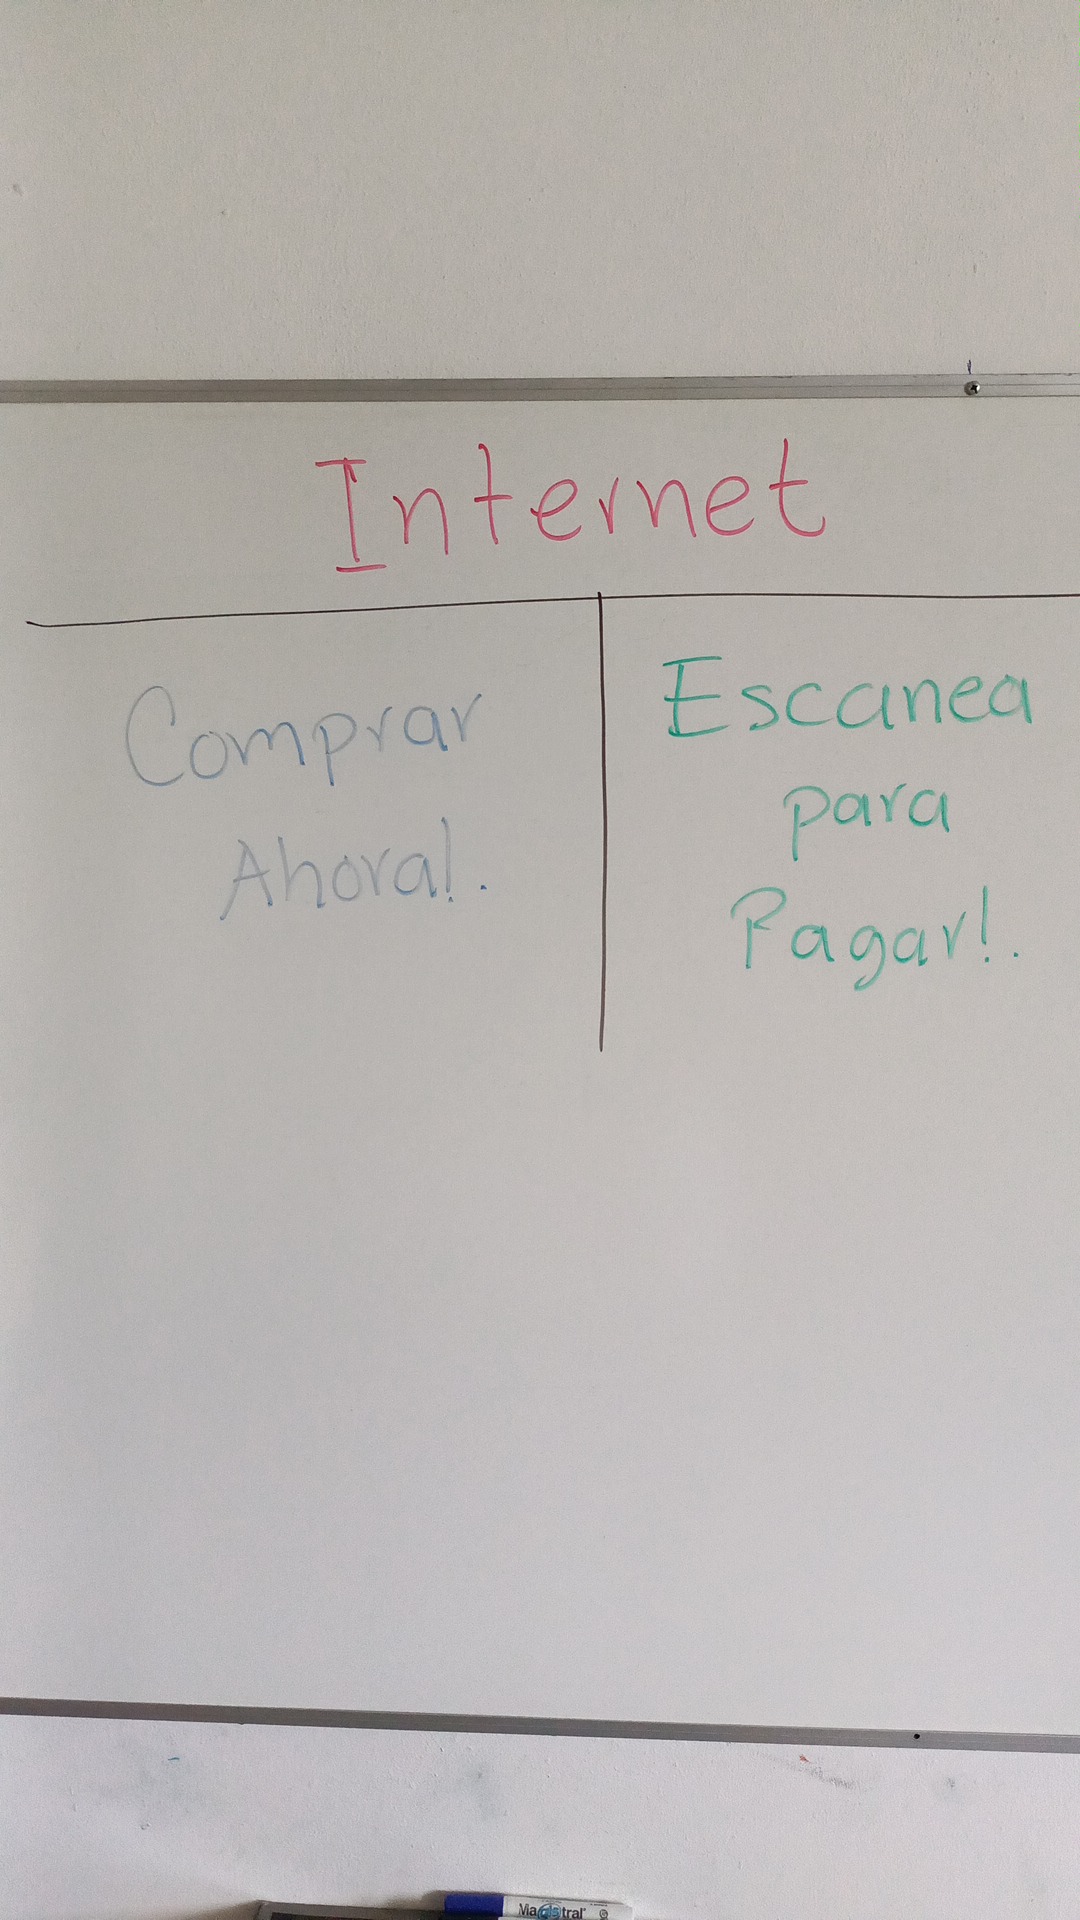 Internet
Comprar
Ahora!.
Escanea
para
Pagar!.
Magistral